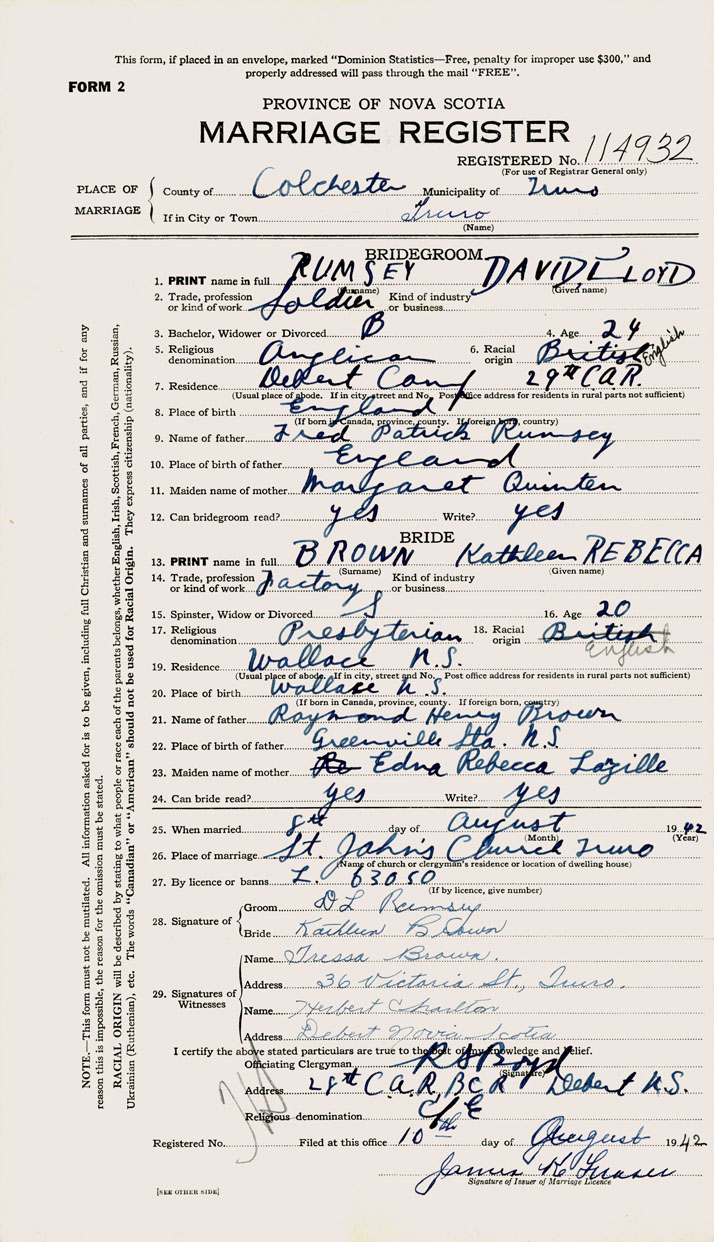 This form, if placed in an envelope, marked "Dominion Statistics—Free, penalty for improper use $300," and
properly addressed will pass through the mail "FREE".
FORM 2
PROVINCE OF NOVA SCOTIA
MARRIAGE REGISTER
REGISTERED No. 114932
(For use of Registrar General only)
PLACE OF MARRIAGE
County of Colchester Municipality of Truro
If in City or Town Truro
(Name)
BRIDEGROOM
1. PRINT name in full RUMSEY DAVID LLOYD
(Surname) (Given name)
2. Trade, profession or kind of work Soldier Kind of industry or business
3. Bachelor, Widower or Divorced B 4. Age 24
5. Religious denomination Anglican 6. Racial origin British English
7. Residence Debert Camp 29th C.A.R.
(Usual place of abode. If in city, street and No. Post office address for residents in rural parts not sufficient)
8. Place of birth England
(If born in Canada, province, county. If foreign born, country)
9. Name of father Fred Patrick Rumsey
10. Place of birth of father England
11. Maiden name of mother Margaret Quinten
12. Can bridegroom read? yes Write? yes
BRIDE
13. PRINT name in full BROWN Kathleen REBECCA
(Surname) (Given name)
14. Trade, profession or kind of work Factory Kind of industry or business
15. Spinster, Widow or Divorced S 16. Age 20
17. Religious denomination Presbyterian 18. Racial origin British English
19. Residence Wallace N.S.
(Usual place of abode. If in city, street and No. Post office address for residents in rural parts not sufficient)
20. Place of birth Wallace N.S.
(If born in Canada, province, county. If foreign born, country)
21. Name of father Raymond Henry Brown
22. Place of birth of father Greenville Sta. N.S.
23. Maiden name of mother Edna Rebecca Lazille
24. Can bride read? yes Write? yes
25. When married 8th day of August 1942
(Month) (Year)
26. Place of marriage St. John's Church Truro
(Name of church or clergyman's residence or location of dwelling house)
27. By licence or banns L. 63050
(If by licence, give number)
28. Signature of
Groom D L Rumsey
Bride Kathleen Brown
29. Signatures of Witnesses
Name Tressa Brown.
Address 36 Victoria St., Truro.
Name Herbert Charlton
Address Debert Novia Scotia
I certify the above stated particulars are true to the best of my knowledge and belief.
Officiating Clergyman R S Boyd
(Signature)
Address 28th C.A.R, BCR Debert N.S.
Religious denomination C/E
Registered No. Filed at this office 10th day of August 1942
James K Fraser
Signature of Issuer of Marriage Licence
[SEE OTHER SIDE]
NOTE.—This form must not be mutilated. All information asked for is to be given, including full Christian and surnames of all parties, and if for any
reason this is impossible, the reason for the omission must be stated.
RACIAL ORIGIN will be described by stating to what people or race each of the parents belongs, whether English, Irish, Scottish, French, German, Russian,
Ukrainian (Ruthenian), etc. The words "Canadian" or "American" should not be used for Racial Origin. They express citizenship (nationality).